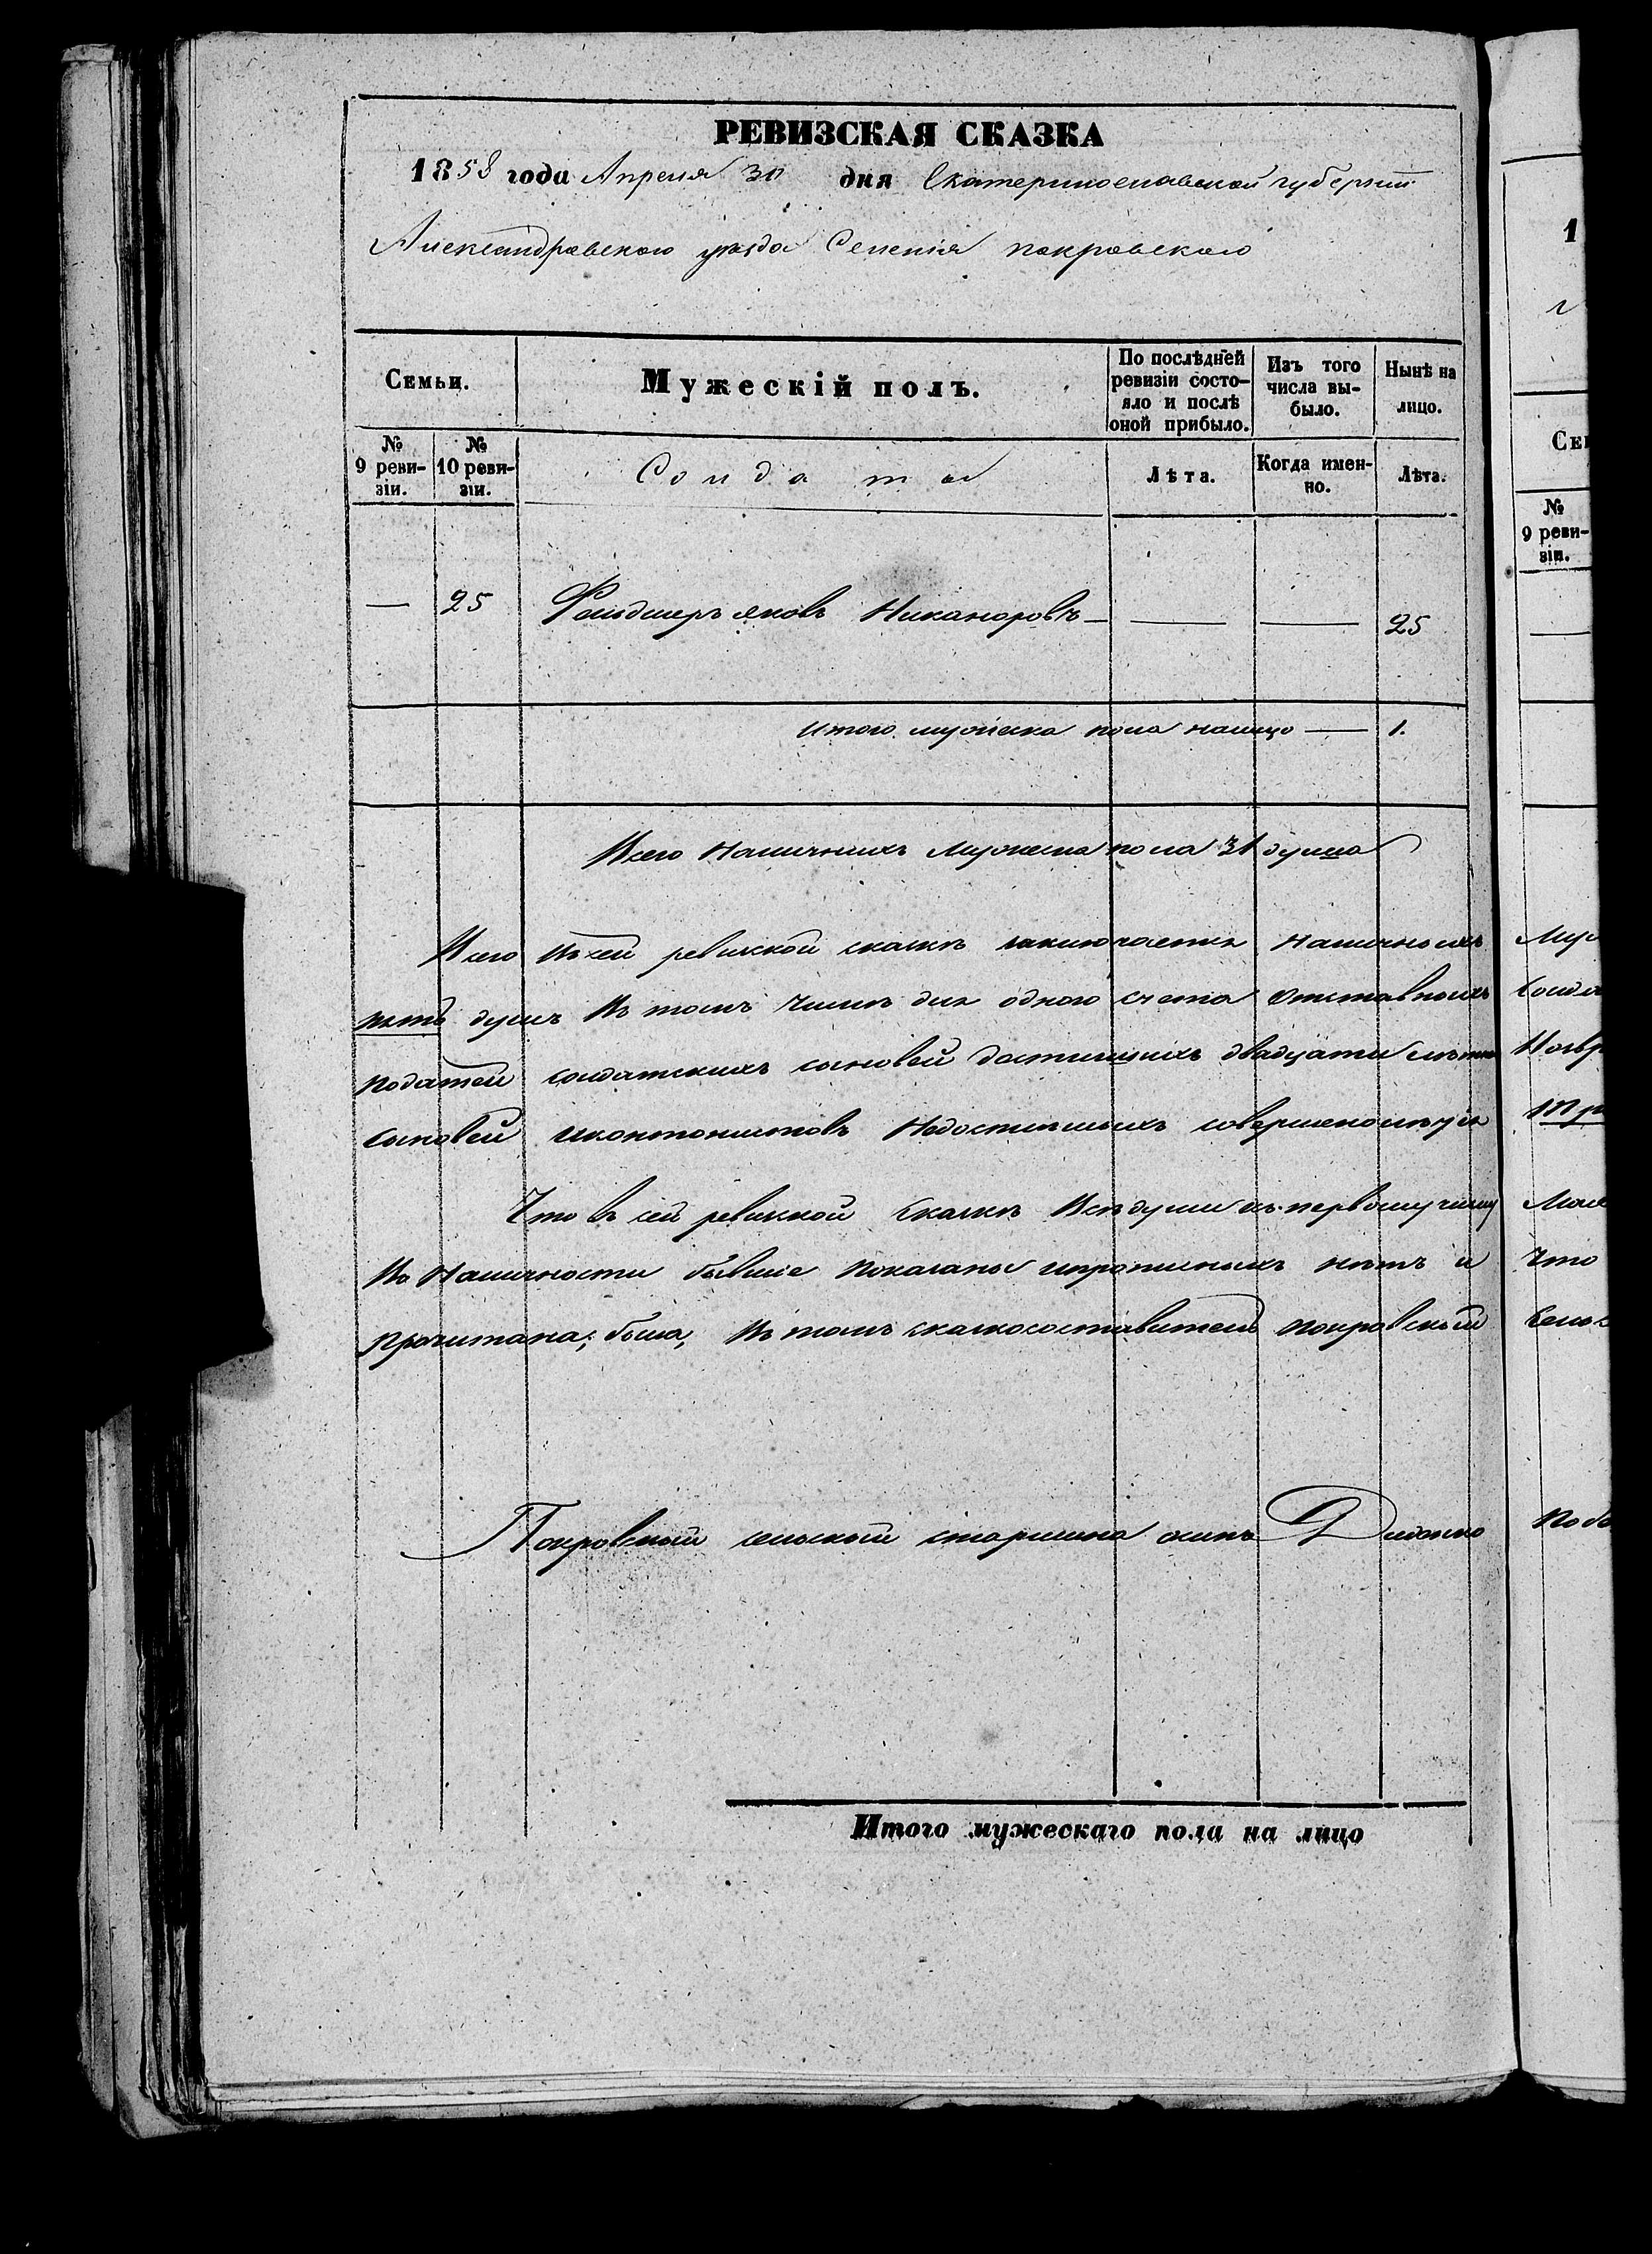 РЕВИЗСКАЯ СКАЗКА
1858 года Апреля 30 дня Екатеринославской губерніи
Александровского уѣзда Селенія покровского
Семьи.
Мужескій полъ.
По послѣдней ревизіи состояло и послѣ оной прибыло.
Изъ того числа выбыло.
Нынѣ на лицо.
№ 9 ревизіи.
№ 10 ревизіи.
Солдаты
Лѣта.
Когда именно.
Лѣта.
— 25 Фельдшеръ яковъ Никаноровъ — — — 25
Итого мужеска пола налицо — 1.
Всего Наличныхъ Мужеска пола 31 душа
Всего въ сей ревизской сказкѣ заключается Наличныхъ
пять душъ Въ томъ числѣ для одного счета Отставныхъ
податей солдатскихъ сыновей достигшихъ двадцати
сыновей икантонистовъ Недостигшихъ совершенолѣтія
Что въ сей ревизской Сказкѣ Всѣ души къ первому числу
Въ Наличности бывшіе Показаны ипрописныхъ нѣтъ и
прочитана; была, Въ томъ сказкосоставитель покровскій
Покровскій сельскій старшина осипъ
Итого мужескаго пола на лицо
1
№ 9 ревизіи.
Что